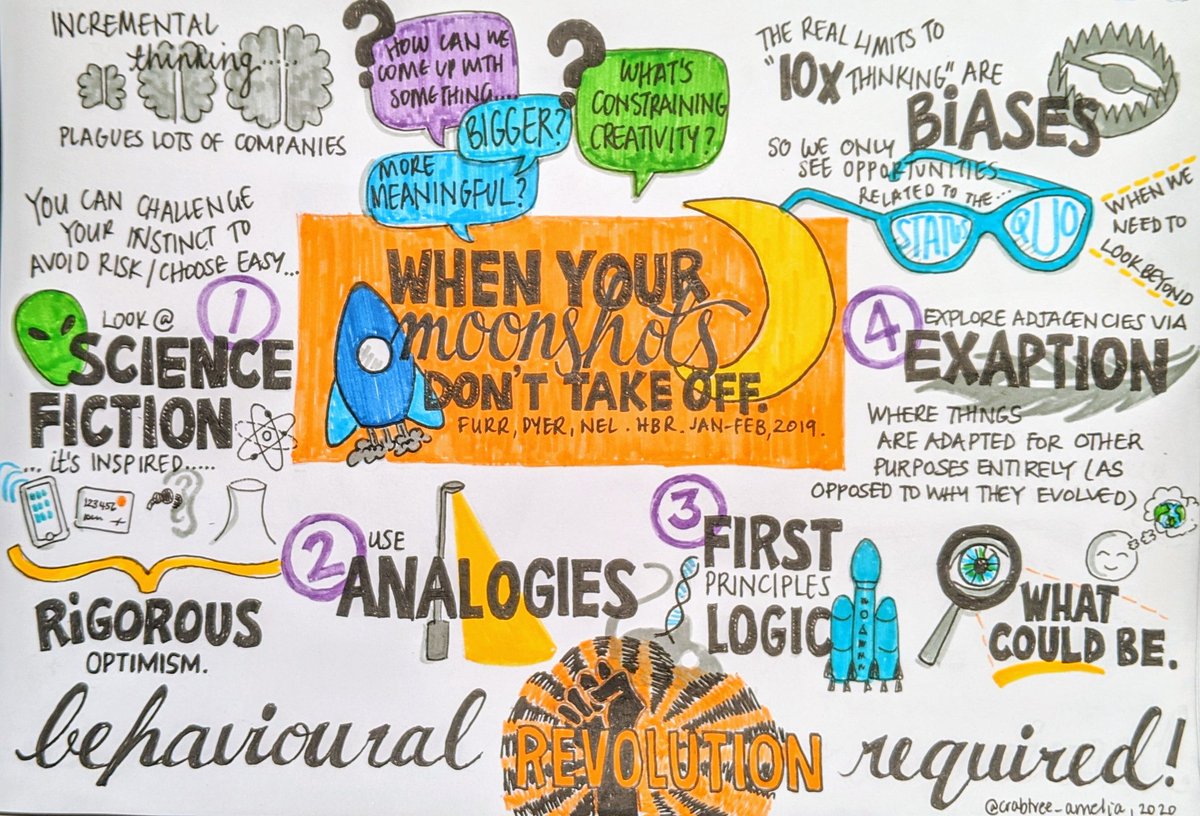 INCREMENTAL
thinking.....
PLAGUES LOTS OF COMPANIES
HOW CAN WE
COME UP WITH
SOMETHING....
BIGGER?
MORE
MEANINGFUL?
WHAT'S
CONSTRAINING
CREATIVITY?
THE REAL LIMITS TO
"10X THINKING" ARE
BIASES
SO WE ONLY
SEE OPPORTUNITIES
RELATED TO THE...
STATUS QUO
WHEN WE
NEED TO
LOOK BEYOND
YOU CAN CHALLENGE
YOUR INSTINCT TO
AVOID RISK/CHOOSE EASY...
WHEN YOUR
moonshots
DON'T TAKE OFF.
FURR, DYER, NEL. HBR. JAN-FEB, 2019.
1
LOOK @
SCIENCE
FICTION
... IT'S INSPIRED.....
123456
RIGOROUS
OPTIMISM.
2
USE
ANALOGIES
3
FIRST
PRINCIPLES
LOGIC
4
EXPLORE ADJACENCIES VIA
EXAPTION
WHERE THINGS
ARE ADAPTED FOR OTHER
PURPOSES ENTIRELY (AS
OPPOSED TO WHY THEY EVOLVED)
WHAT
COULD BE.
behavioural REVOLUTION required!
@crabtree_amelia, 2020